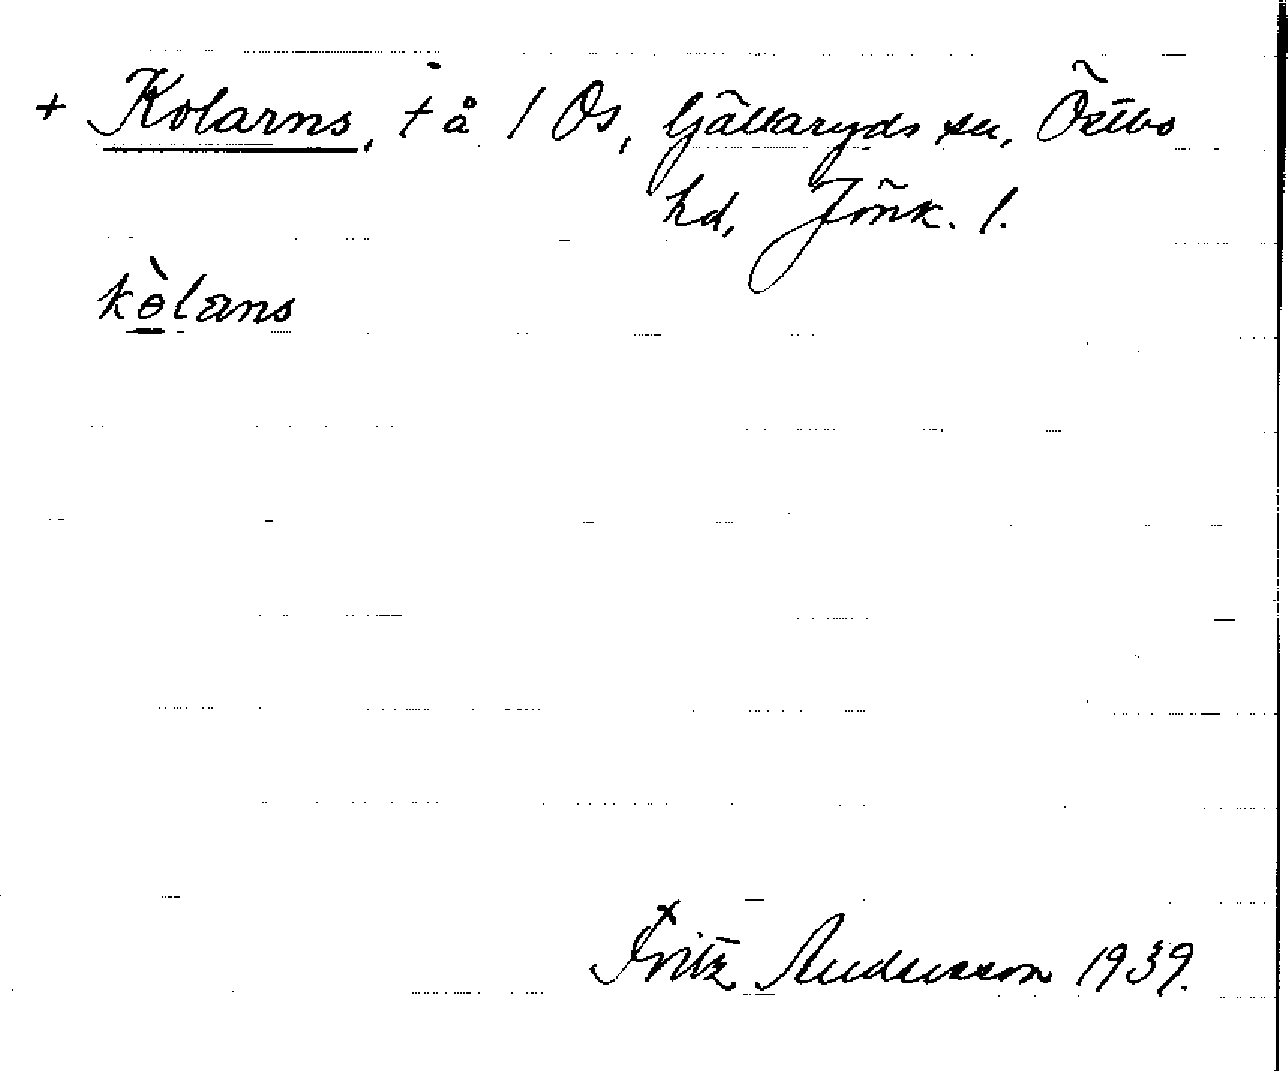 + Kolarns, t å 1 Os, Gällaryds sn, Östbo
hd, Jönk. l.
kòlæns
Fritz Andersson 1939.